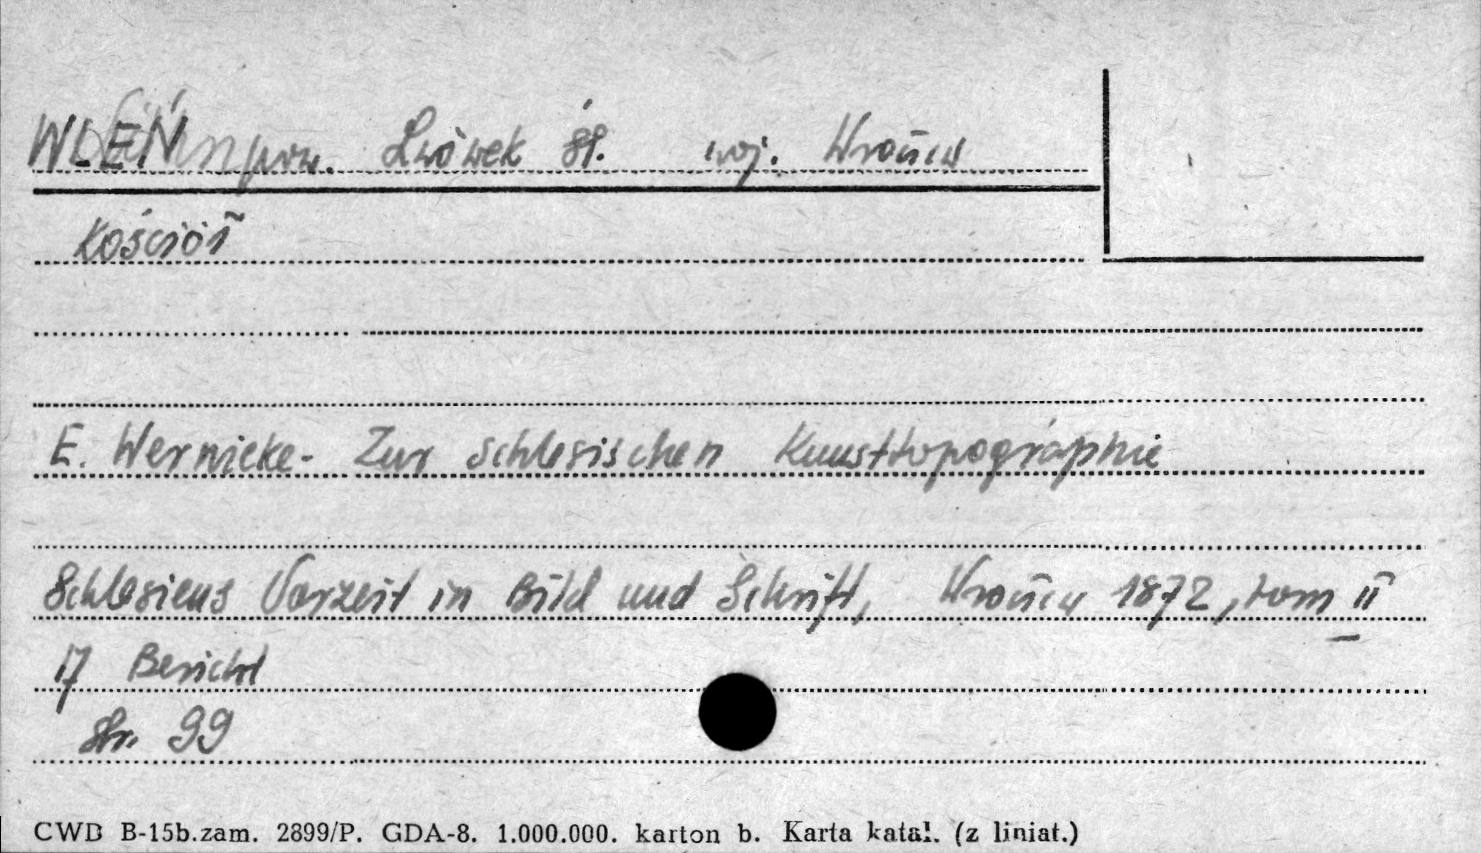 WLEŃ pow. Lwówek Śl. woj. Wrocław
Kościół
E. Wernicke - Zur schlesischen Kunsttopographie
Schlesiens Vorzeit in Bild und Schrift, Wrocław 1872, tom II
17 Bericht
str. 99
CWD B-15b.zam. 2899/P. GDA-8. 1.000.000. karton b. Karta katal. (z liniat.)